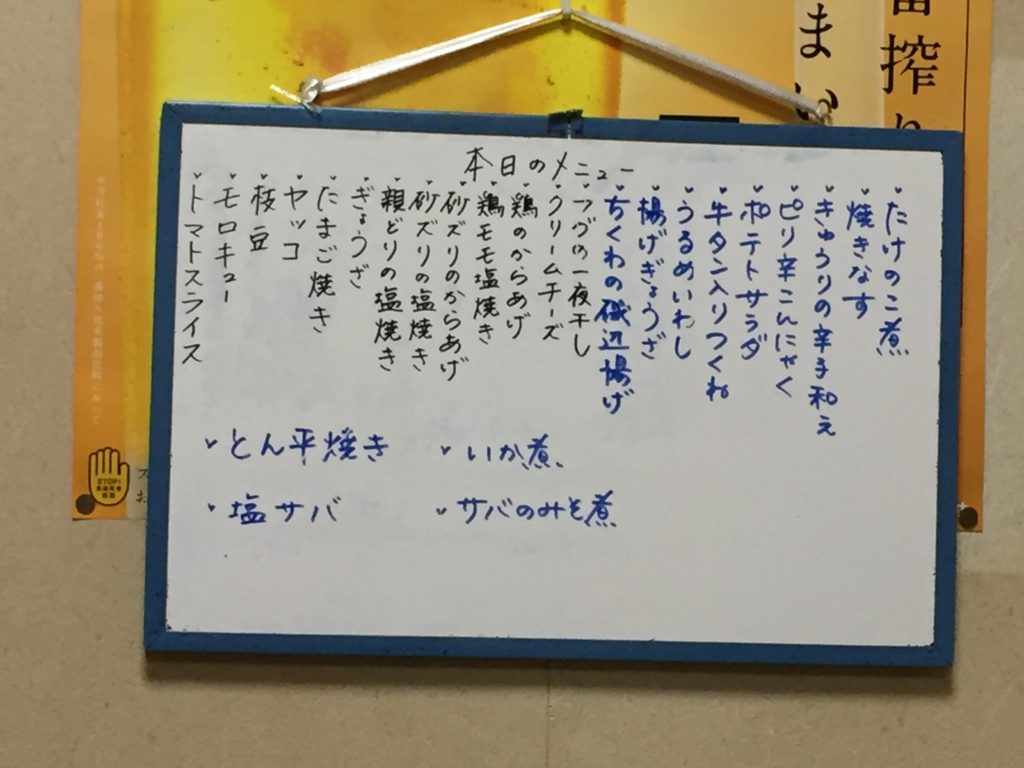 本日のメニュー
・たけのこ煮
・焼きなす
・きゅうりの辛子和え
・ピリ辛こんにゃく
・ポテトサラダ
・牛タン入りつくね
・うるめいわし
・揚げぎょうざ
・ちくわの磯辺揚げ
・フグの一夜干し
・クリームチーズ
・鶏のからあげ
・鶏モモ塩焼き
・砂ズリのからあげ
・砂ズリの塩焼き
・親どりの塩焼き
・ぎょうざ
・たまご焼き
・ヤッコ
・枝豆
・モロキュー
・トマトスライス
・とん平焼き
・いか煮
・塩サバ
・サバのみそ煮
搾り
まい
STOP!